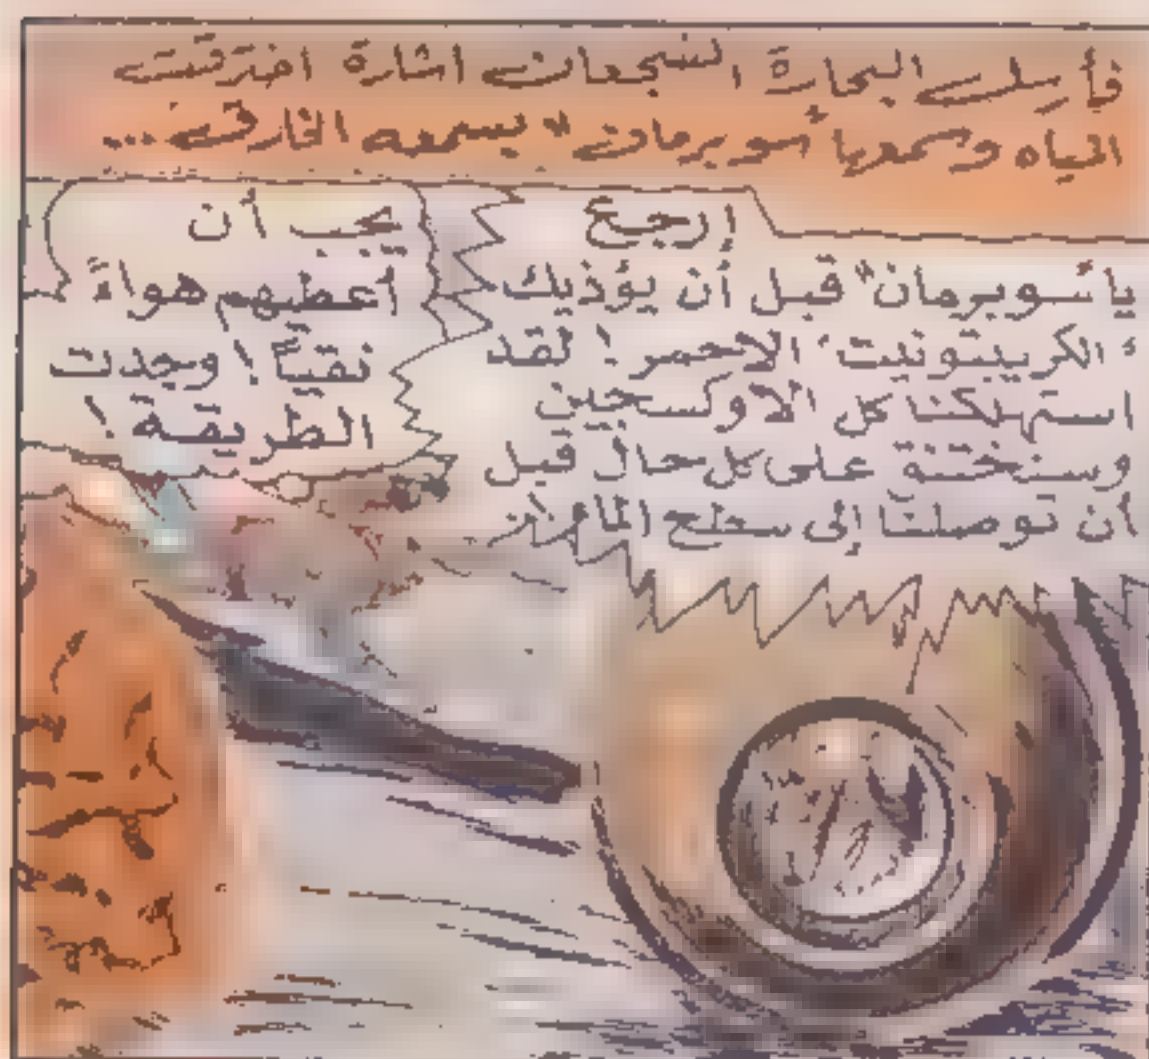 فأرسل البحارة الشجعان اشارة اخترقت
المياه وسمعها "سوبرمان" بسمعه الخارق...
إرجع
يا "سوبرمان" قبل أن يؤذيك
"الكريبتونيت" الاحمر! لقد
استهلكنا كل الاوكسجين
وسنختنق على كل حال قبل
أن توصلنا إلى سطح الماء!
يجب أن
أعطيهم هواءً
نقيّاً! وجدت
الطريقة!